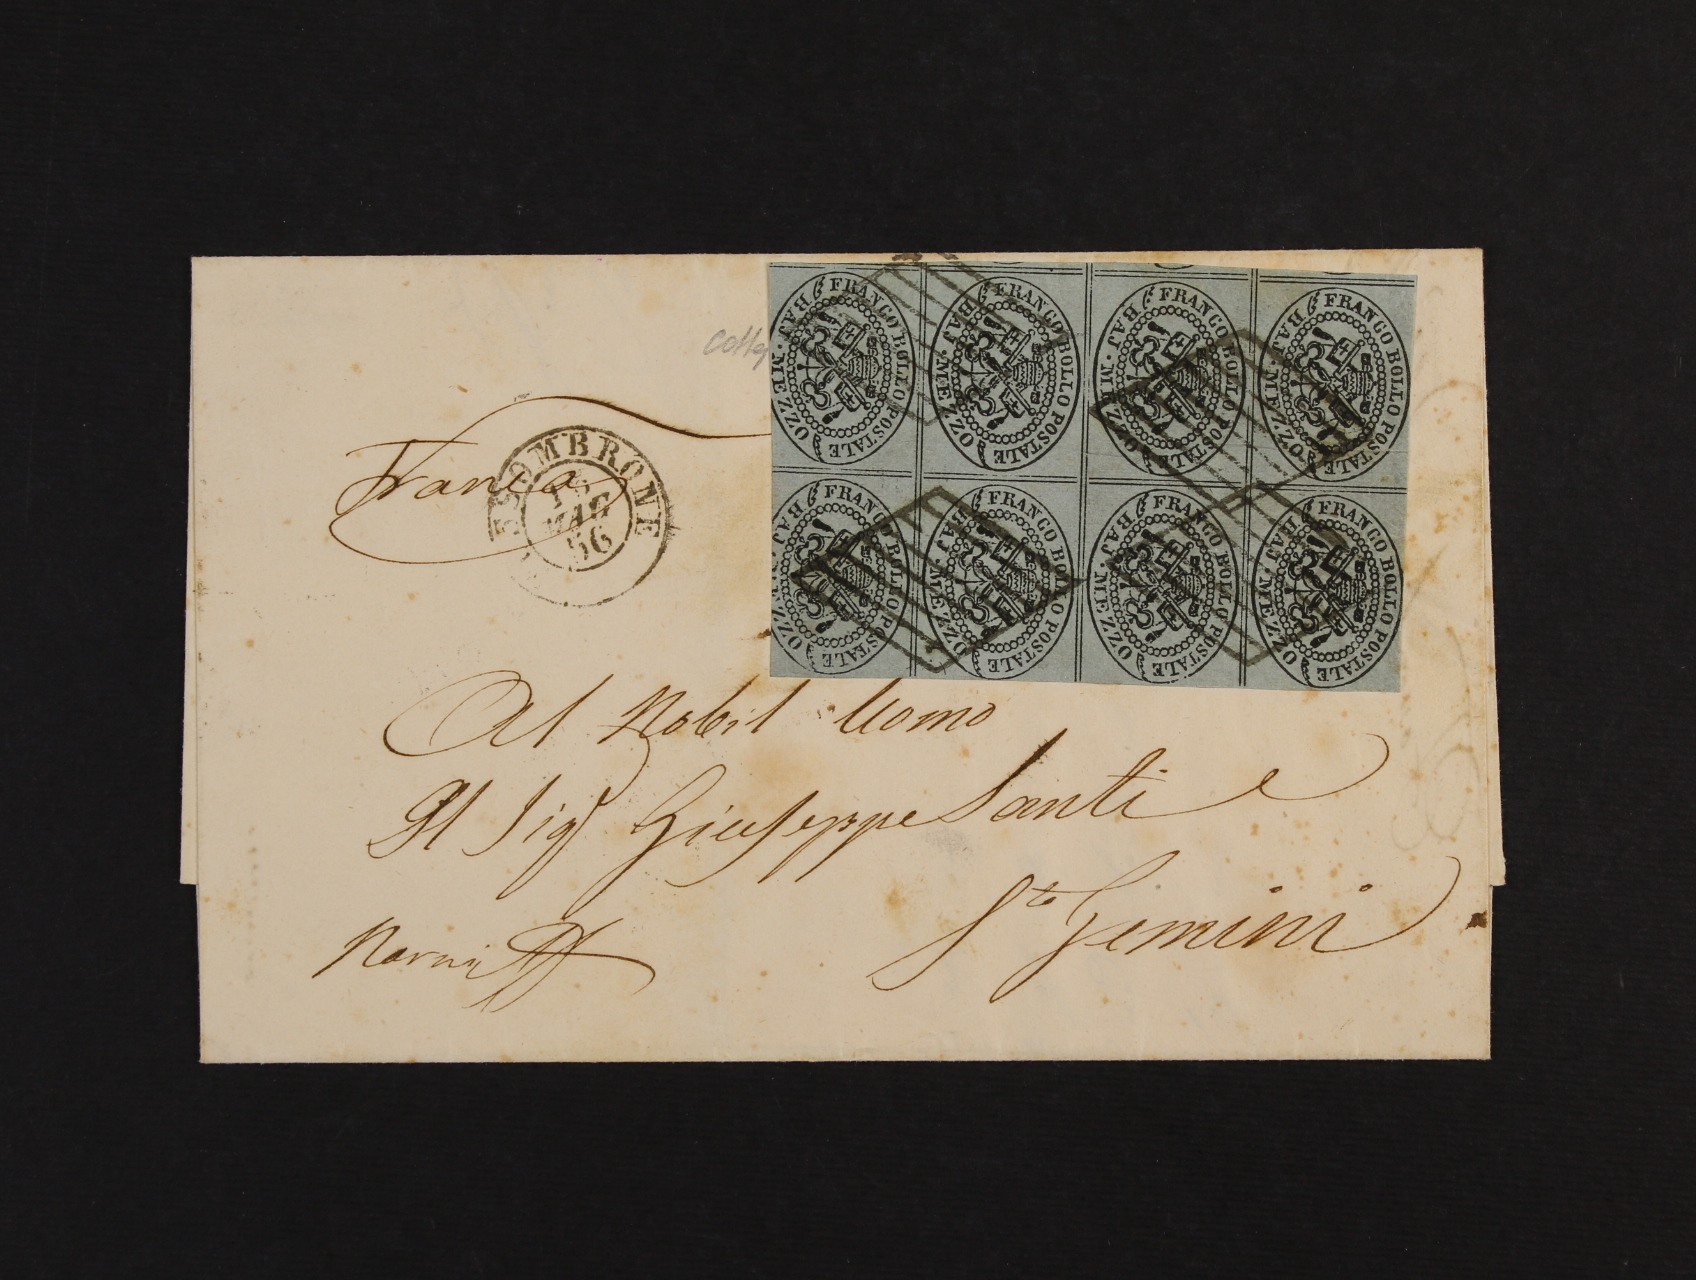 FRANCO BOLLO POSTALE BAJ. MEZZO
FRANCO BOLLO POSTALE BAJ. MEZZO
FRANCO BOLLO POSTALE BAJ. MEZZO
FRANCO BOLLO POSTALE BAJ. MEZZO
FRANCO BOLLO POSTALE BAJ. MEZZO
FRANCO BOLLO POSTALE BAJ. MEZZO
FRANCO BOLLO POSTALE BAJ. MEZZO
FRANCO BOLLO POSTALE BAJ. MEZZO
Franca
MAG
56
Al Nobil Uomo
Il Sigr Giuseppe Santi
Narni
Sto Gemini